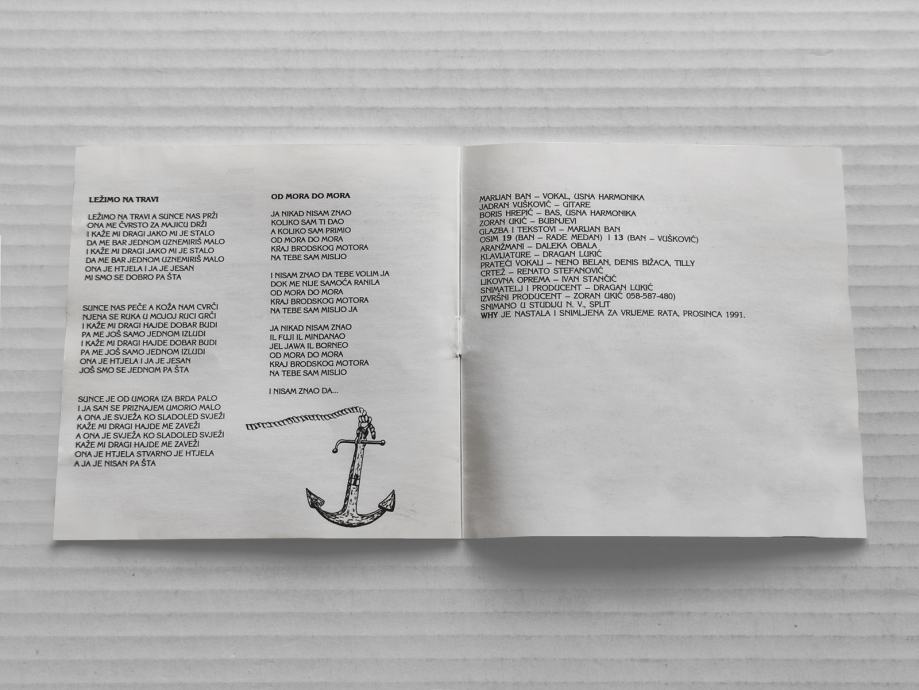 LEŽIMO NA TRAVI
LEŽIMO NA TRAVI A SUNCE NAS PRŽI
ONA ME ČVRSTO ZA MAJICU DRŽI
I KAŽE MI DRAGI JAKO MI JE STALO
DA ME BAR JEDNOM UZNEMIRIŠ MALO
I KAŽE MI DRAGI JAKO MI JE STALO
DA ME BAR JEDNOM UZNEMIRIŠ MALO
ONA JE HTJELA I JA JE JESAN
MI SMO SE DOBRO PA ŠTA
SUNCE NAS PEČE A KOŽA NAM CVRČI
NJENA SE RUKA U MOJOJ RUCI GRČI
I KAŽE MI DRAGI HAJDE DOBAR BUDI
PA ME JOŠ SAMO JEDNOM IZLUDI
I KAŽE MI DRAGI HAJDE DOBAR BUDI
PA ME JOŠ SAMO JEDNOM IZLUDI
ONA JE HTJELA I JA JE JESAN
JOŠ SMO SE JEDNOM PA ŠTA
SUNCE JE OD UMORA IZA BRDA PALO
I JA SAN SE PRIZNAJEM UMORIO MALO
A ONA JE SVJEŽA KO SLADOLED SVJEŽI
KAŽE MI DRAGI HAJDE ME ZAVEŽI
A ONA JE SVJEŽA KO SLADOLED SVJEŽI
KAŽE MI DRAGI HAJDE ME ZAVEŽI
ONA JE HTJELA STVARNO JE HTJELA
A JA JE NISAN PA ŠTA
OD MORA DO MORA
JA NIKAD NISAM ZNAO
KOLIKO SAM TI DAO
A KOLIKO SAM PRIMIO
OD MORA DO MORA
KRAJ BRODSKOG MOTORA
NA TEBE SAM MISLIO
I NISAM ZNAO DA TEBE VOLIM JA
DOK ME NIJE SAMOĆA RANILA
OD MORA DO MORA
KRAJ BRODSKOG MOTORA
NA TEBE SAM MISLIO JA
JA NIKAD NISAM ZNAO
IL FUJI IL MINDANAO
JEL JAWA IL BORNEO
OD MORA DO MORA
KRAJ BRODSKOG MOTORA
NA TEBE SAM MISLIO
I NISAM ZNAO DA...
MARIJAN BAN – VOKAL, USNA HARMONIKA
JADRAN VUŠKOVIĆ – GITARE
BORIS HREPIĆ – BAS, USNA HARMONIKA
ZORAN UKIĆ – BUBNJEVI
GLAZBA I TEKSTOVI – MARIJAN BAN
OSIM 19 (BAN – RADE MEDAN) I 13 (BAN – VUŠKOVIĆ)
ARANŽMANI – DALEKA OBALA
KLAVIJATURE – DRAGAN LUKIĆ
PRATEĆI VOKALI – NENO BELAN, DENIS BIŽACA, TILLY
CRTEŽ – RENATO STEFANOVIĆ
LIKOVNA OPREMA – IVAN STANČIĆ
SNIMATELJ I PRODUCENT – DRAGAN LUKIĆ
IZVRŠNI PRODUCENT – ZORAN UKIĆ 058-587-480)
SNIMANO U STUDIJU N. V., SPLIT
WHY JE NASTALA I SNIMLJENA ZA VRIJEME RATA, PROSINCA 1991.